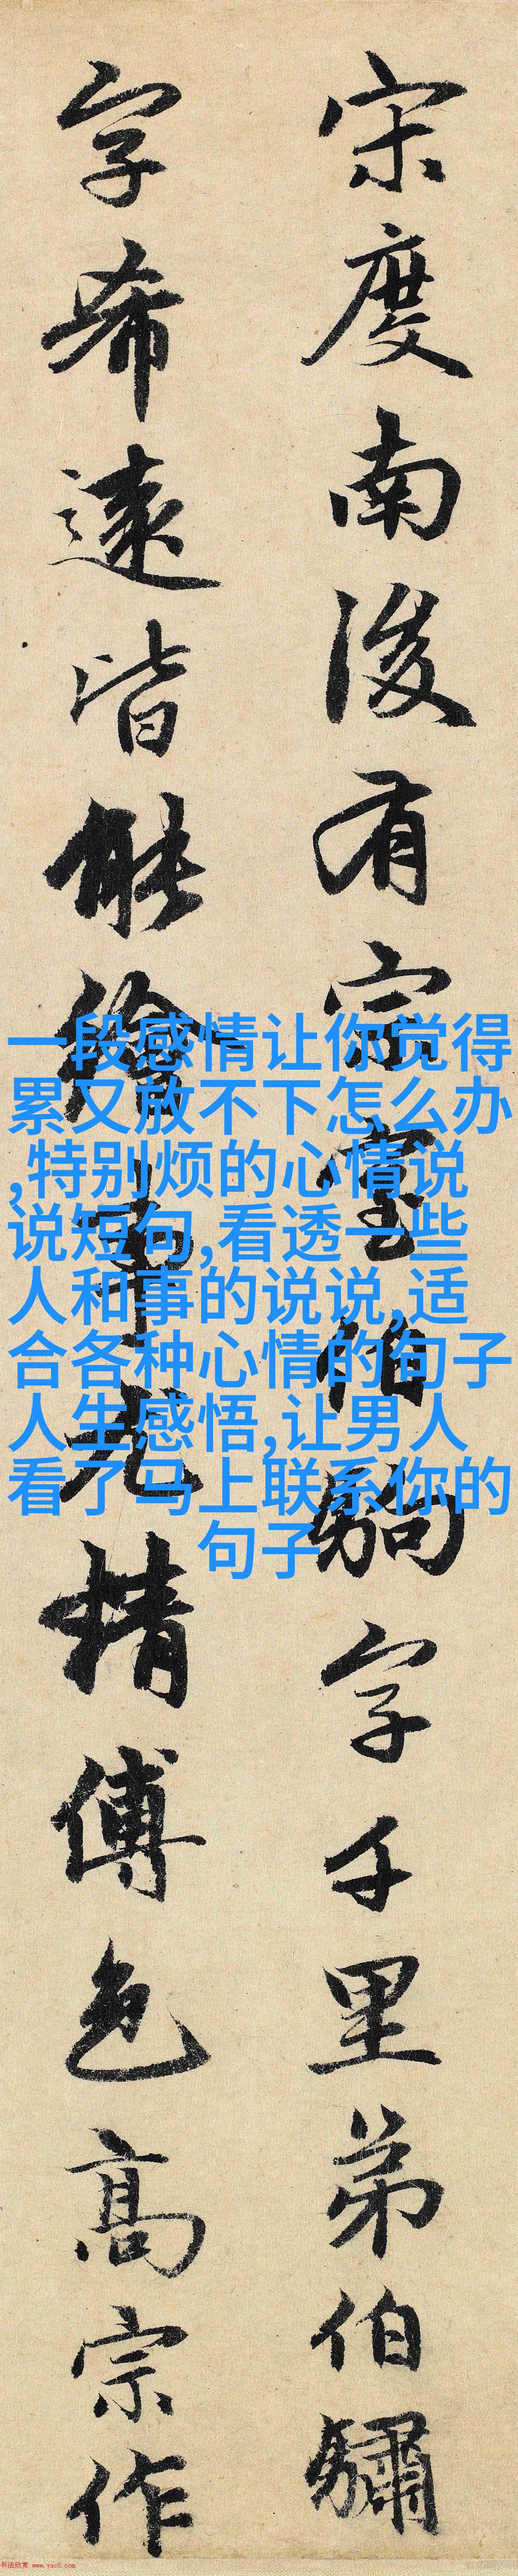 宋度南後有宗室伯駒字千里弟伯驌
字希遠皆能繪事尤精傅色高宗作
一段感情让你觉得
累又放不下怎么办
,特别烦的心情说
说短句,看透一些
人和事的说说,适
合各种心情的句子
人生感悟,让男人
看了马上联系你的
句子
书法欣赏 www.yac8.com